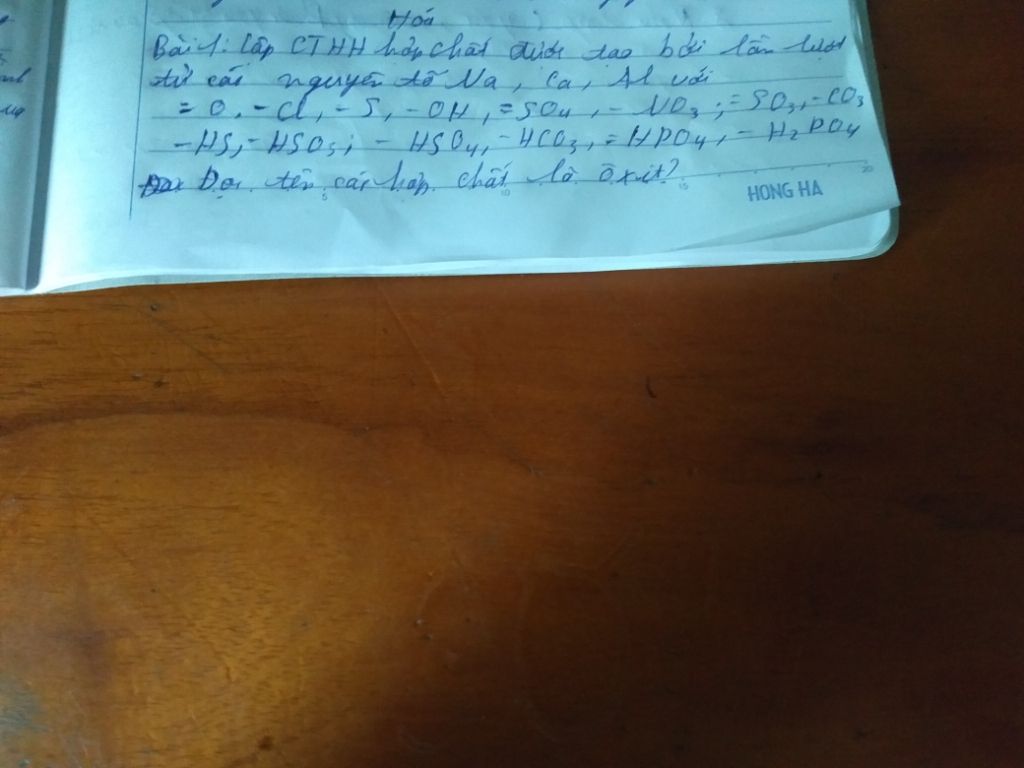 Hóa
Bài 1: Lập CTHH hợp chất được tạo bởi lần lượt
từ các nguyên tố Na, Ca, Al với
= O, - Cl, - S, - OH, = SO4, - NO3; = SO3, - CO3
- HS, - HSO3; - HSO4, - HCO3, = HPO4, - H2PO4
Đọc tên các hợp chất là Oxit?
5 10 15 20
HONG HA